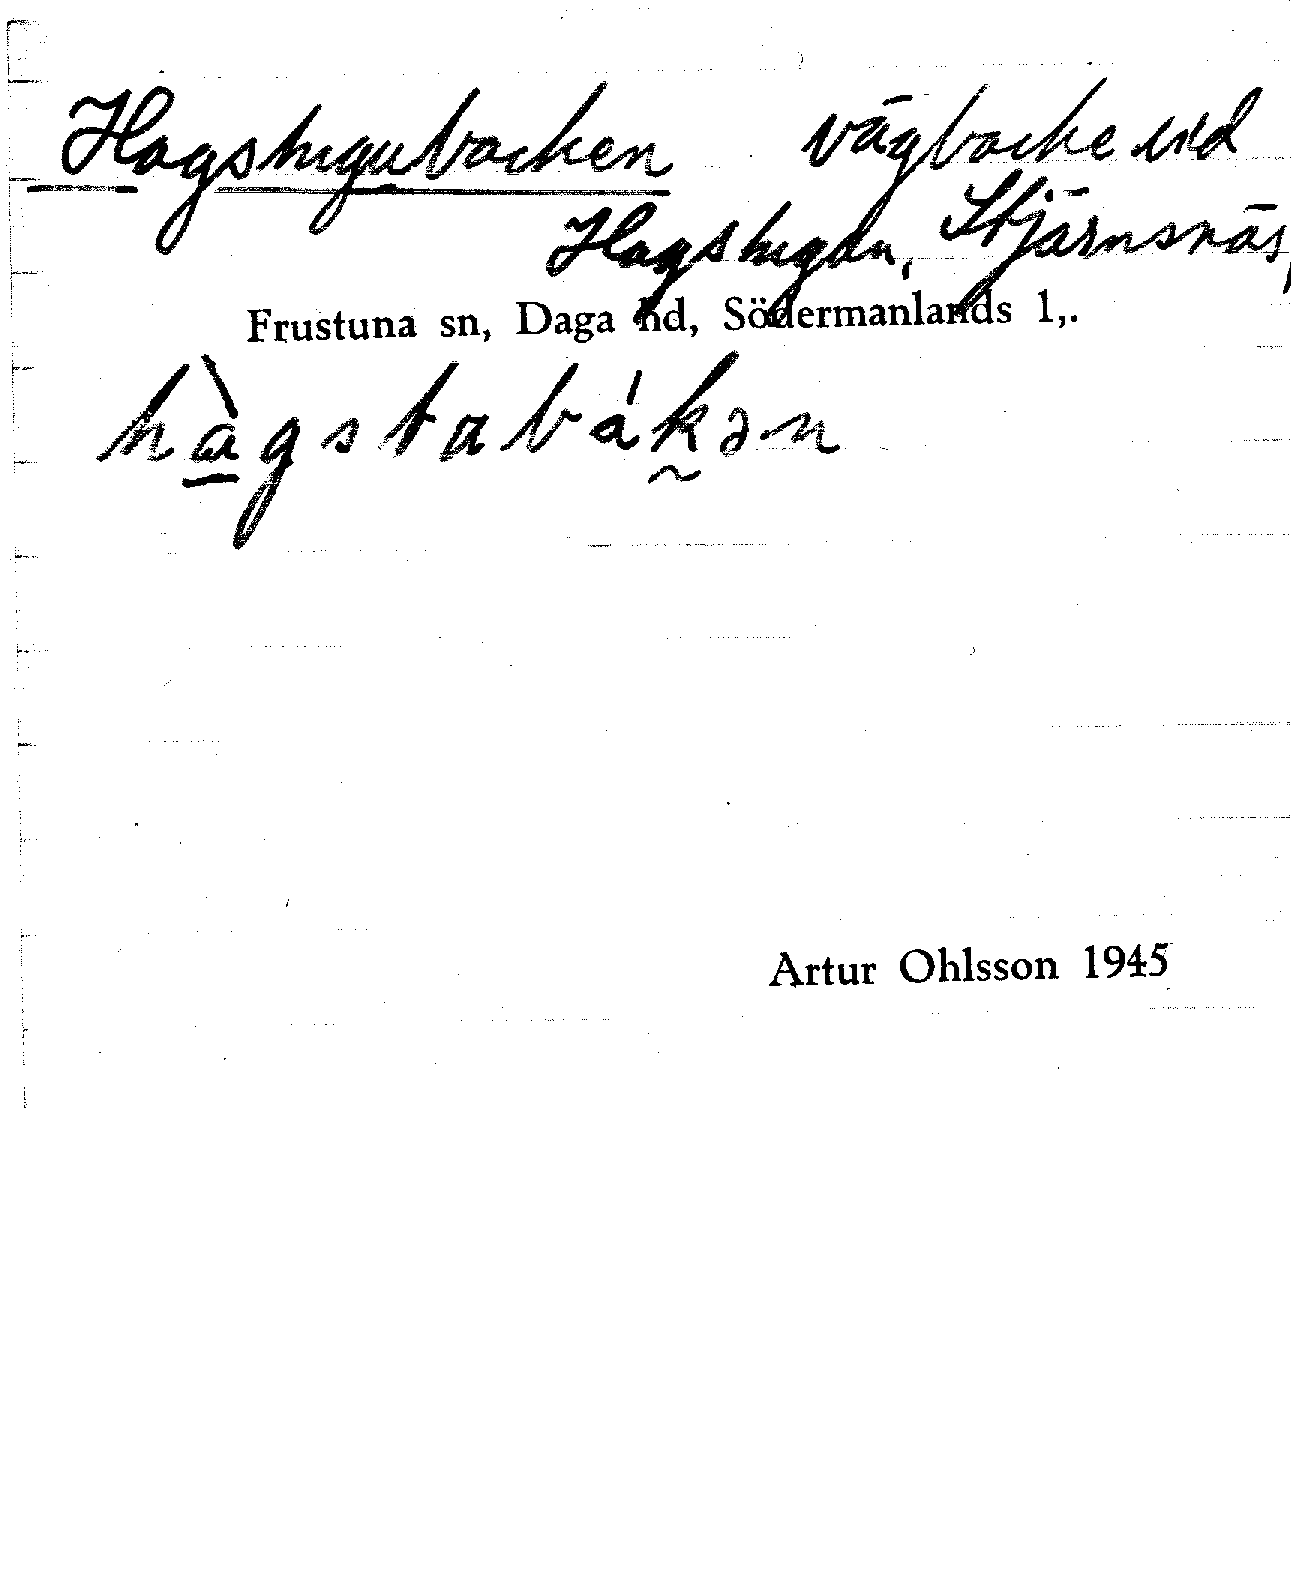 Hagstugubacken vägbacke vid
Hagstugan, Stjärnsnäs,
Frustuna sn, Daga hd, Södermanlands l,.
hàgstabákən
Artur Ohlsson 1945